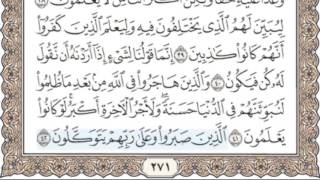 وَعْدًا عَلَيْهِ حَقًّا وَلَٰكِنَّ أَكْثَرَ ٱلنَّاسِ لَا يَعْلَمُونَ ٣٨
لِيُبَيِّنَ لَهُمُ ٱلَّذِى يَخْتَلِفُونَ فِيهِ وَلِيَعْلَمَ ٱلَّذِينَ كَفَرُوٓا۟
أَنَّهُمْ كَانُوا۟ كَٰذِبِينَ ٣٩ إِنَّمَا قَوْلُنَا لِشَىْءٍ إِذَآ أَرَدْنَٰهُ أَن نَّقُولَ
لَهُۥ كُن فَيَكُونُ ٤٠ وَٱلَّذِينَ هَاجَرُوا۟ فِى ٱللَّهِ مِنۢ بَعْدِ مَا ظُلِمُوا۟
لَنُبَوِّئَنَّهُمْ فِى ٱلدُّنْيَا حَسَنَةً وَلَأَجْرُ ٱلْءَاخِرَةِ أَكْبَرُ لَوْ كَانُوا۟
يَعْلَمُونَ ٤١ ٱلَّذِينَ صَبَرُوا۟ وَعَلَىٰ رَبِّهِمْ يَتَوَكَّلُونَ ٤٢
٢٧١